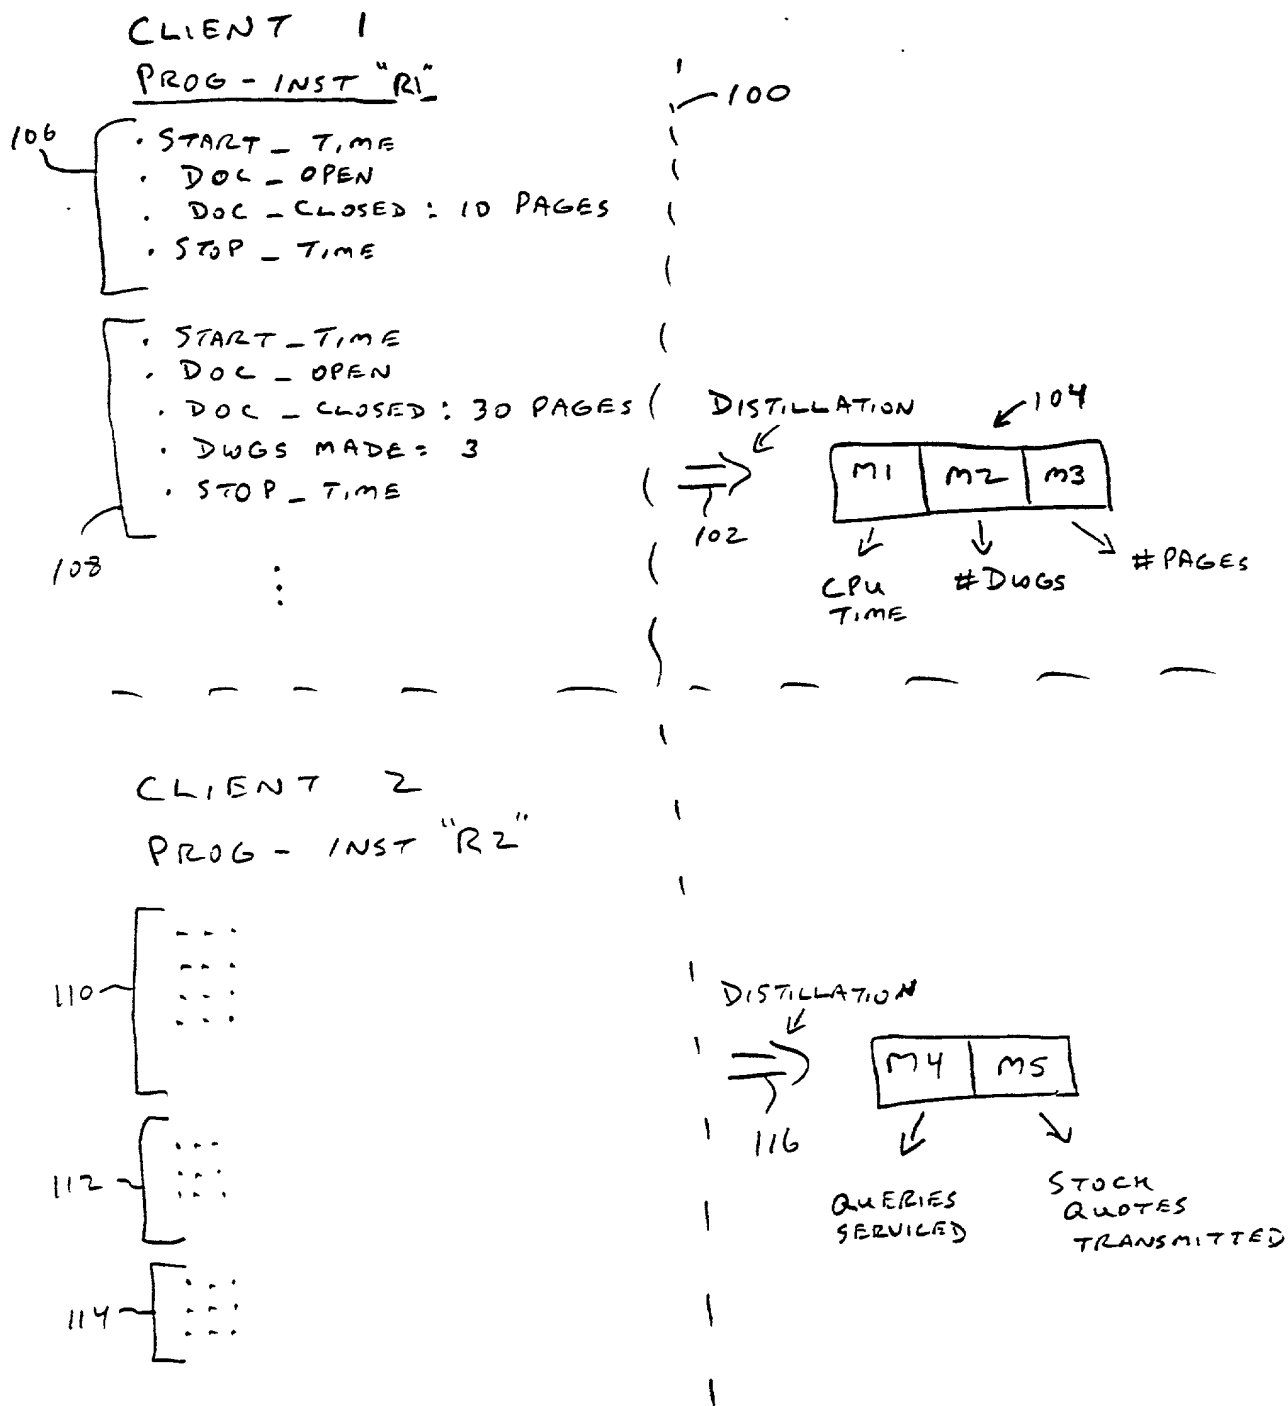 CLIENT 1
PROG - INST "R1"
100
106
· START _ TIME
· DOC _ OPEN
· DOC _ CLOSED : 10 PAGES
· STOP _ TIME
· START _ TIME
· DOC _ OPEN
· DOC _ CLOSED : 30 PAGES
· DWGS MADE = 3
· STOP _ TIME
108
DISTILLATION
104
102
M1 M2 M3
CPU
TIME
#DWGS
#PAGES
CLIENT 2
PROG - INST "R2"
110
112
114
DISTILLATION
116
M4 M5
QUERIES
SERVICED
STOCK
QUOTES
TRANSMITTED